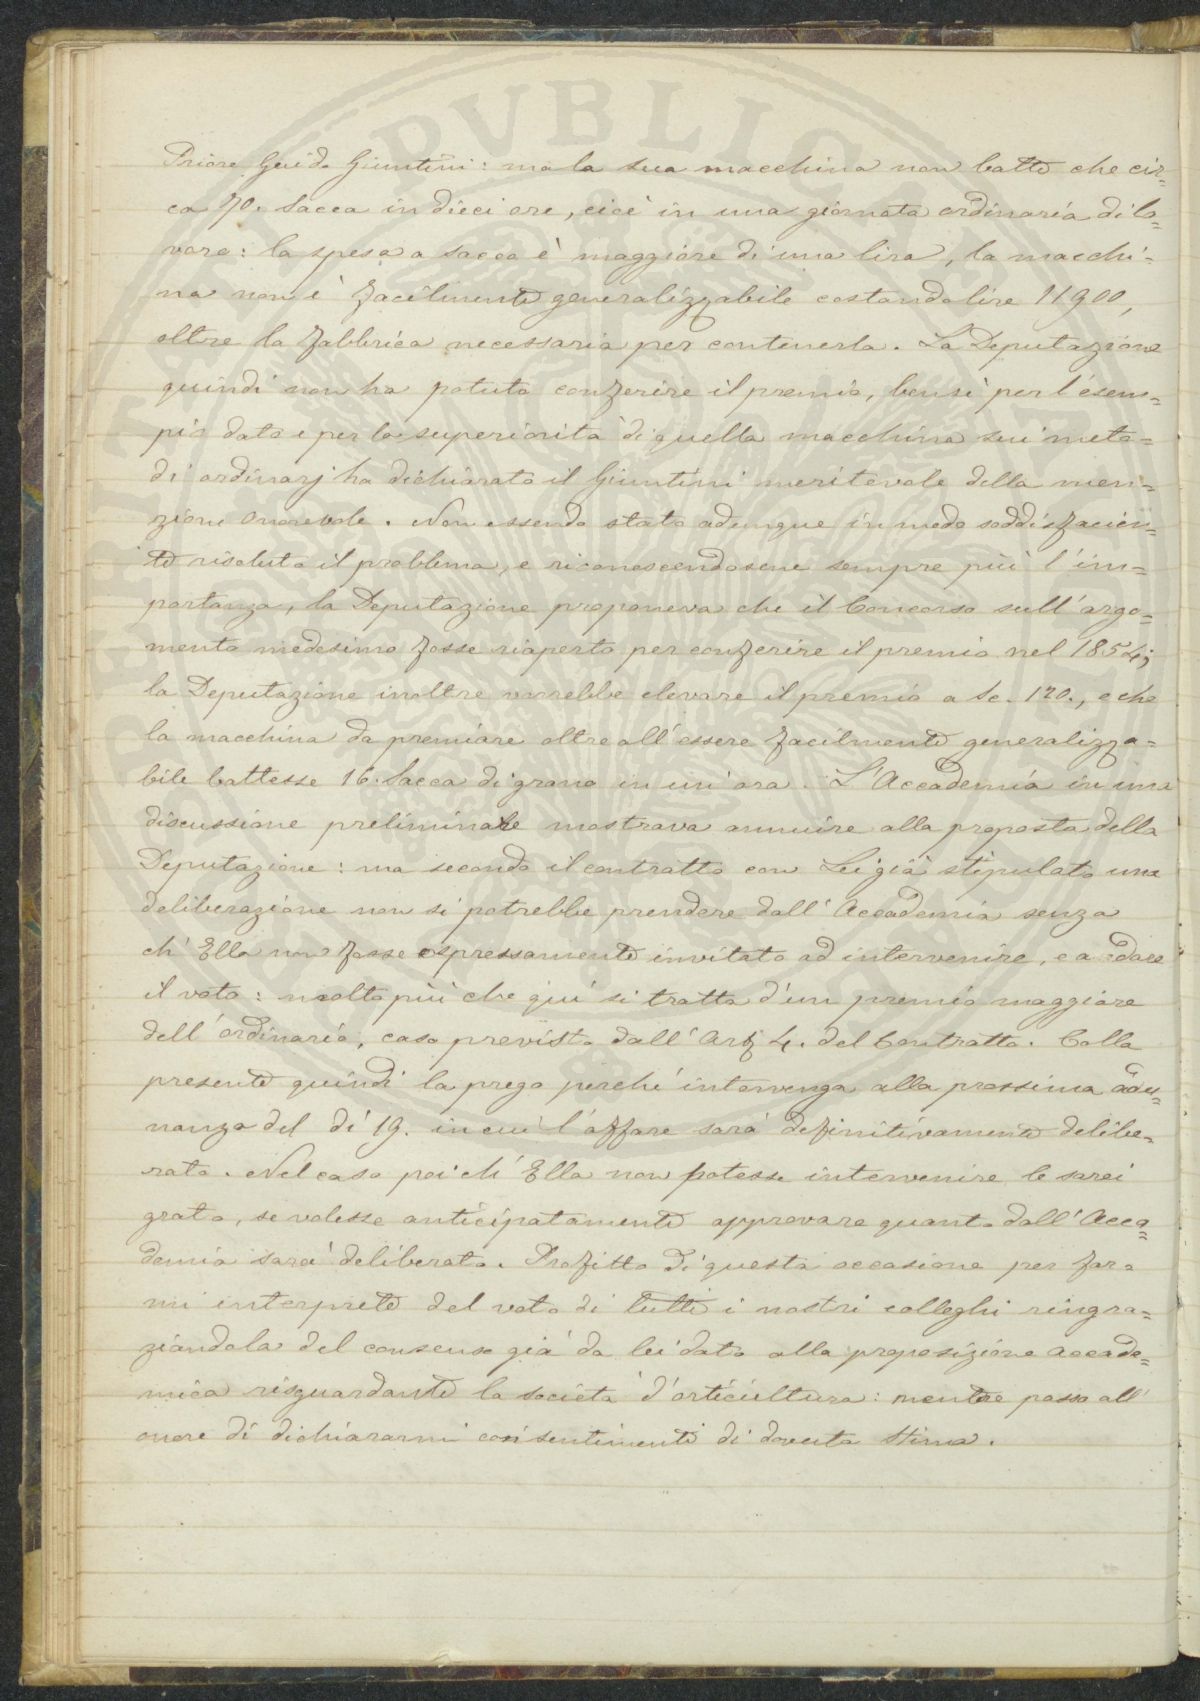 PVBLICA
Priore Guido Giuntini: ma la sua macchina non batte che cir=
ca 70. Sacca in dieci ore, cioè in una giornata ordinaria di la=
voro: la spesa a sacca è maggiore di una lira, la macchi=
na non è facilmente generalizzabile costando lire 11900,
oltre la fabbrica necessaria per contenerla. La Deputazione
quindi non ha potuto conferire il premio, bensì per l'esem=
pio dato e per la superiorità di quella macchina sui meto=
di ordinarj ha dichiarato il Giuntini meritevole della men=
zione onorevole. Non essendo stato adunque in modo soddisfacien=
te risoluto il problema, e riconoscendosene sempre più l'im=
portanza, la Deputazione proponeva che il Concorso sull'argo=
mento medesimo fosse riaperto per conferire il premio nel 1854;
la Deputazione inoltre vorrebbe elevare il premio a Sc. 120., e che
la macchina da premiare oltre all'essere facilmente generalizza=
bile battesse 16. Sacca di grano in un'ora. L'Accademia in una
discussione preliminare mostrava annuire alla proposta della
Deputazione: ma secondo il contratto con Lei già stipulato una
deliberazione non si potrebbe prendere dall'Accademia senza
ch'Ella non fosse espressamente invitato ad intervenire, e a dare
il voto: molto più che qui si tratta d'un premio maggiore
dell'ordinario, caso previsto dall'Art 4. del Contratto. Colla
presente quindi la prego perché intervenga alla prossima adu=
nanza del dì 19. in cui l'affare sarà definitivamente delibe=
rato. Nel caso poi ch'Ella non potesse intervenire le sarei
grato, se volesse anticipatamente approvare quanto dall'Acca=
demia sarà deliberato. Profitto di questa occasione per far=
mi interprete del voto di tutti i nostri colleghi ringra=
ziandola del consenso già da lei dato alla proposizione accade=
mica risguardante la società d'orticultura: mentre passo all'
onore di dichiararmi coi sentimenti di dovuta stima.